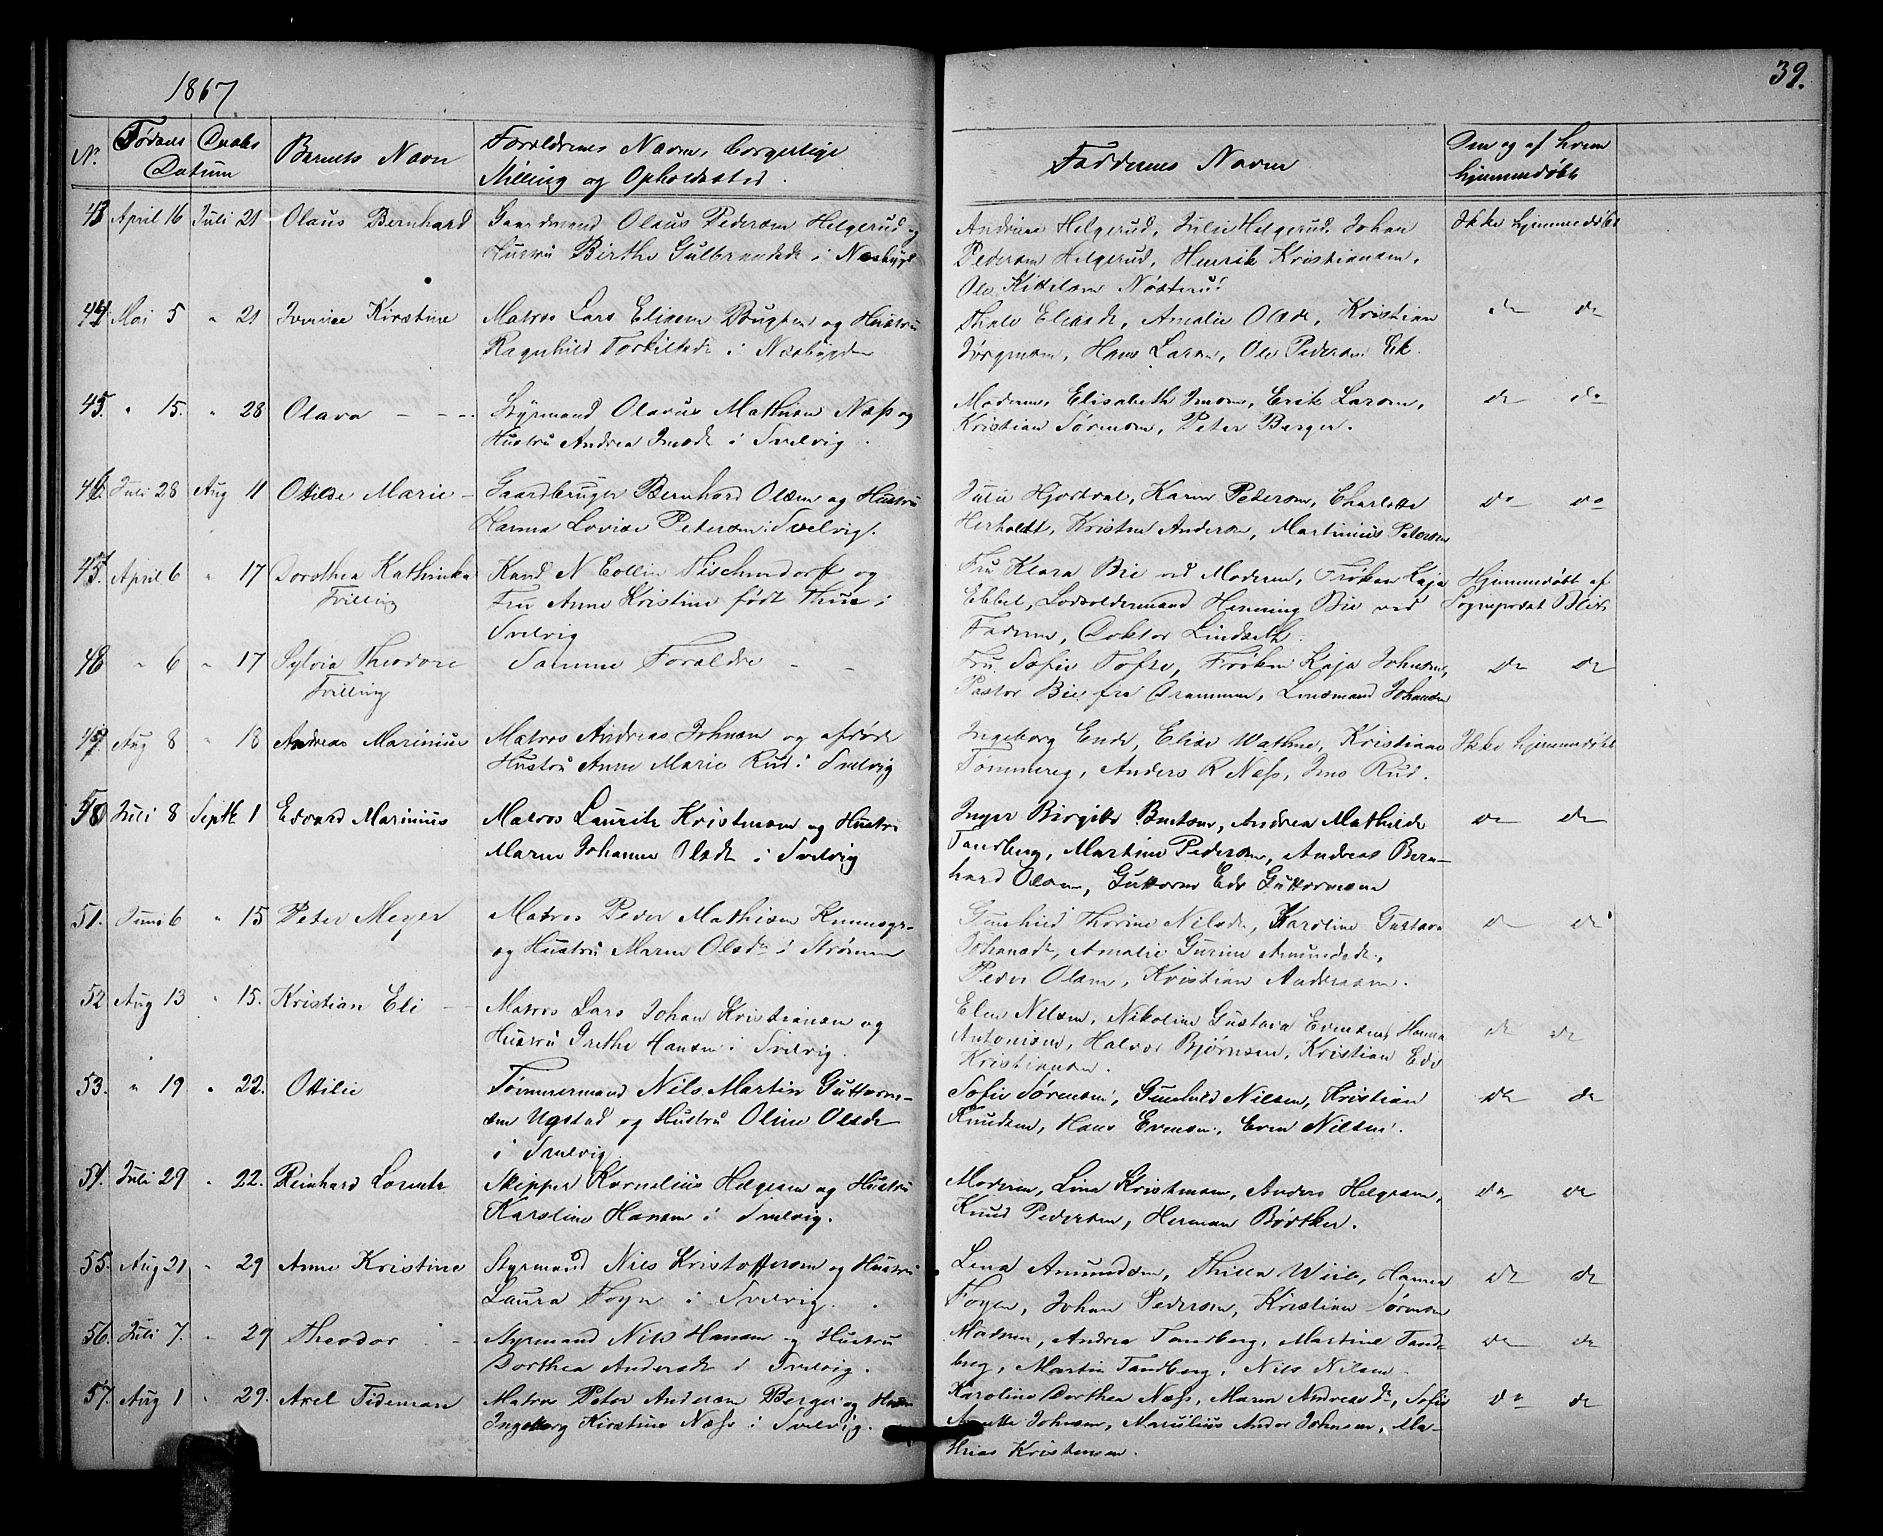 1867
39.
N. Fødsels Daabs Datum Barnets Navn Forældrenes Navn, borgerlige
Stilling og Opholdssted.
Faddernes Navne
Om og af hvem
hjemmedøbt
43 April 16 Juli 21 Olaus Bernhard Gaardmand Olaus Pedersen Helgerud og
Hustru Birthe Gulbrandsd. i Nesbygd
Andrine Helgerud, Julie Helgerud, Johan
Pedersen Helgerud, Henrik Kristiansen,
Ole Kittelsen Nøsterud
Ikke hjemmedøbt
44 Mai 5 " 21 Kirstine Matros Lars Eliasen Bugten og Hustru
Ragnhild Torkilsdr i Nesbygden
Thale Eliasdr, Amalie Olsdr, Kristian
Jørgensen, Hans Larsen, Ole Pedersen Ek.
do do
45. " 15. " 28 Olava - - - Styrmand Olavus Mathisen Næss og
Hustru Andrea Jensdr i Svelvig.
Moderen, Elisabeth Jensen, Erik Larsen,
Kristian Sørensen, Peter Berger.
do do
46. Juli 28 Aug 11 Otilde Marie - Gaardbruger Bernhard Olsen og Hustru
Hanna Lovise Petersen i Svelvig.
Julie Hjortdal, Karen Pedersen, Charlotte
Herholdt, Kristen Andersen, Martinius Petersen
do do
47. April 6 " 17 Dorothea Kathinka
Trilling
Kand N Collin Tischendorf og
Fru Anne Kristine født Thue i
Svelvig
Fru Klara Bie ved Moderen, Frøken Kaja
Ebbel, Lodsoldermand Henning Bie ved
Faderen, Doktor Lindseth.
Hjemmedøbt af
Sogneprest Blix
48 " 6 " 17 Sylvia Theodore
Trilling
Samme Forældre - -
Fru Sofie Tofte, Frøken Kaja Johnsen,
Pastor Bie fra Drammen, Lensmand Johansen
do do
49 Aug 8 " 18 Andreas Marinius Matros Andreas Johnsen og afdøde
Hustru Anne Marie Rud i Svelvig
Ingeborg Ende, Elise Wathne, Kristiane
Tømmereg, Anders R Næss, Jens Rud.
Ikke hjemmedøbt
50 Juli 8 Septb. 1 Edvard Marinius Matros Lauritz Kristensen og Hustru
Maren Johanne Olsdr i Svelvig
Inger Birgitte Bentsen, Andrea Mathilde
Tandberg, Martine Pedersen, Andreas Bern-
hard Olsen, Guttorm Edv Guttormsen
do do
51. Juni 6 " 15 Peter Meyer Matros Peder Mathisen
og Hustru Maren Olsdr i Strømm
Gunhild Thorine Nilsdr, Karoline Gustava
Johansdr, Amalie Gurine Amundsdr,
Peder Olsen, Kristian Andersen.
do do
52 Aug 13 " 15. Kristian Eli - - Matros Lars Johan Kristiansen og
Hustru Grethe Hansen i Svelvig.
Elen Nilsen, Nikoline Gustava Evensen, Hanna
Antonisen, Halvor Bjørnsen, Kristian Edv
Kristiansen.
do do
53. " 19 " 22. Ottilie Tømmermand Nils Martin Guttorm-
sen Ugstad og Hustru Oline Olsdr
i Svelvig.
Sofie Sørensen, Gunhild Nilsen, Kristian
Knudsen, Hans Evensen, Even Nilsen.
do do
54. Juli 29 " 22. Reinhard Lorentz Skipper Kornelius Helgesen og Hustru
Karoline Hansen i Svelvig.
Moderen, Lina Kristensen, Anders Helgesen,
Knud Pedersen, Herman Bødtker.
do do
55. Aug 21 " 29 Anne Kristine Styrmand Nils Kristoffersen og Hustru
Laura Foyn i Svelvig.
Lena Amundsen, Thilla Wiib, Hanna
Foyen, Johan Pedersen, Kristian Sørensen
do do
56. Juli 7. " 29 Theodor Styrmand Nils Hansen og Hustru
Dorthea Andersdr i Svelvig.
Moderen, Andrea Tandberg, Martine Tand-
berg, Martin Tandberg, Nils Nilsen
do do
57. Aug 1 " 29. Axel Tideman Matros Peter Andersen Berger og Hustru
Ingeborg Kirstine Næss i Svelvig.
Karoline Dorthea Næss, Maren Andreasdr, Sofie
Anette Johnsen, Marulius Andor Johnsen, Ma-
thias Kristensen.
do do